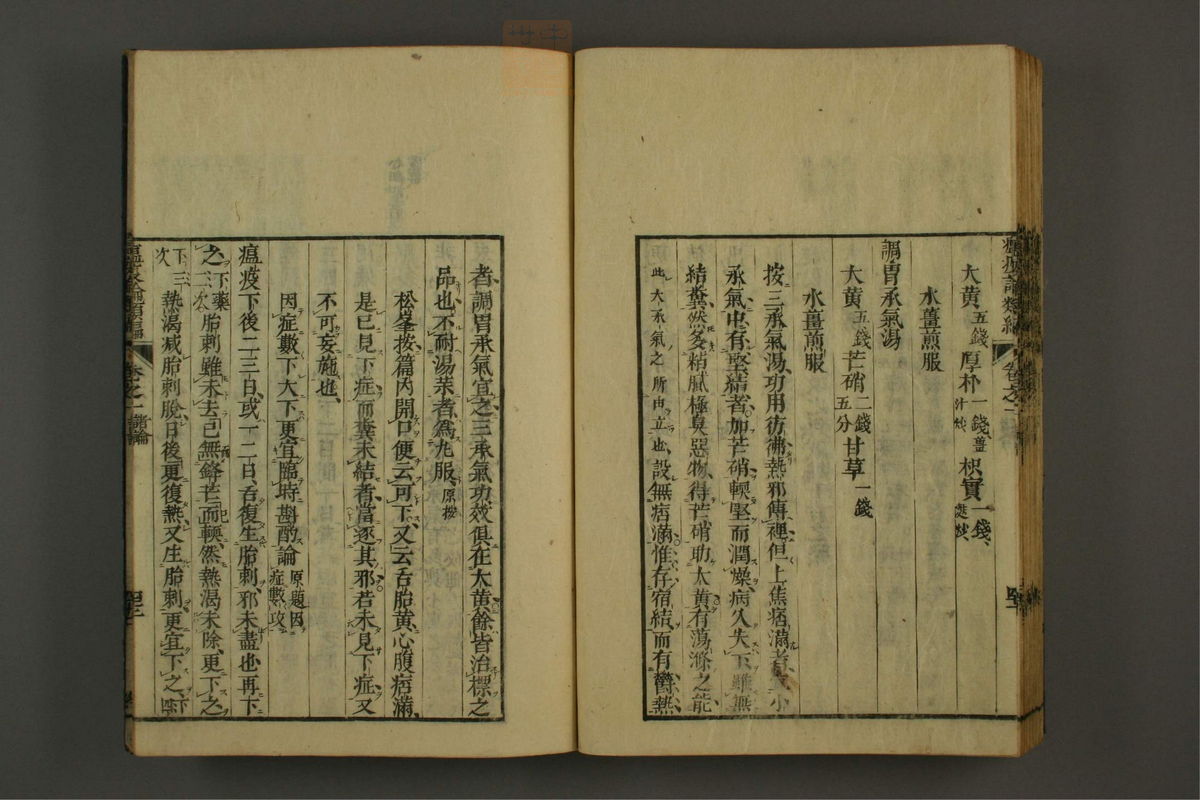 大黃五錢厚朴一錢薑汁炒枳實一錢麩炒
水薑煎服
調胃承氣湯
大黃五錢芒硝二錢五分甘草一錢
水薑煎服
按三承氣湯功用彷彿熱邪傳裡但上焦痞滿者宜小
承氣中有堅結者加芒硝輭堅而潤燥病久失下雖無
結糞然多粘膩極臭惡物得芒硝助大黃有蕩滌之能
此大承氣之所由立也設無痞滿惟存宿結而有欝熱
者調胃承氣宜之三承氣功效俱在大黃餘皆治標之
品也不耐湯藥者爲丸服原按
松峯按篇內開口便云可下又云舌胎黃心腹痞滿
是已見下症而糞未結者當逐其邪若未見下症又
不可妄施也
因症數下大下更宜臨時斟酌論原題因症數攻
瘟疫下後二三日或一二日舌復生胎刺邪未盡也再下
之下藥二次胎刺雖未去已無鋒芒而輭然熱渴未除更下之
下三次熱渴减胎刺脫日後更復熱又生胎刺更宜下之下四
卷之一諸論